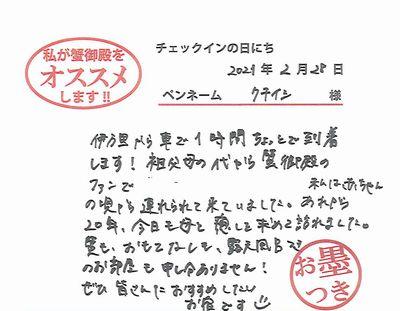 私が蟹御殿を
オススメ
します!!
チェックインの日にち
2021年2月28日
ペンネーム クテイシ 様
伊万里から車で1時間ちょっとで到着
します!祖父母の代から蟹御殿の
ファンで 私は赤ちゃん
の頃から連れられて来ていました。あれから
20年、今日も母と癒しを求めて訪れました。
蟹も、おもてなしも、露天風呂つき
のお部屋も申し分ありません!
ぜひ皆さんにおすすめしたい
お宿です
お墨
つき